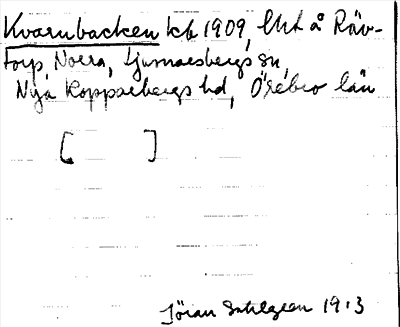 Kvarnbacken kb 1909, lht å Räv-
torp Norra, Ljusnarsbergs sn,
Nya Kopparbergs hd, Örebro län
[ ]
Jöran Sahlgren 1913